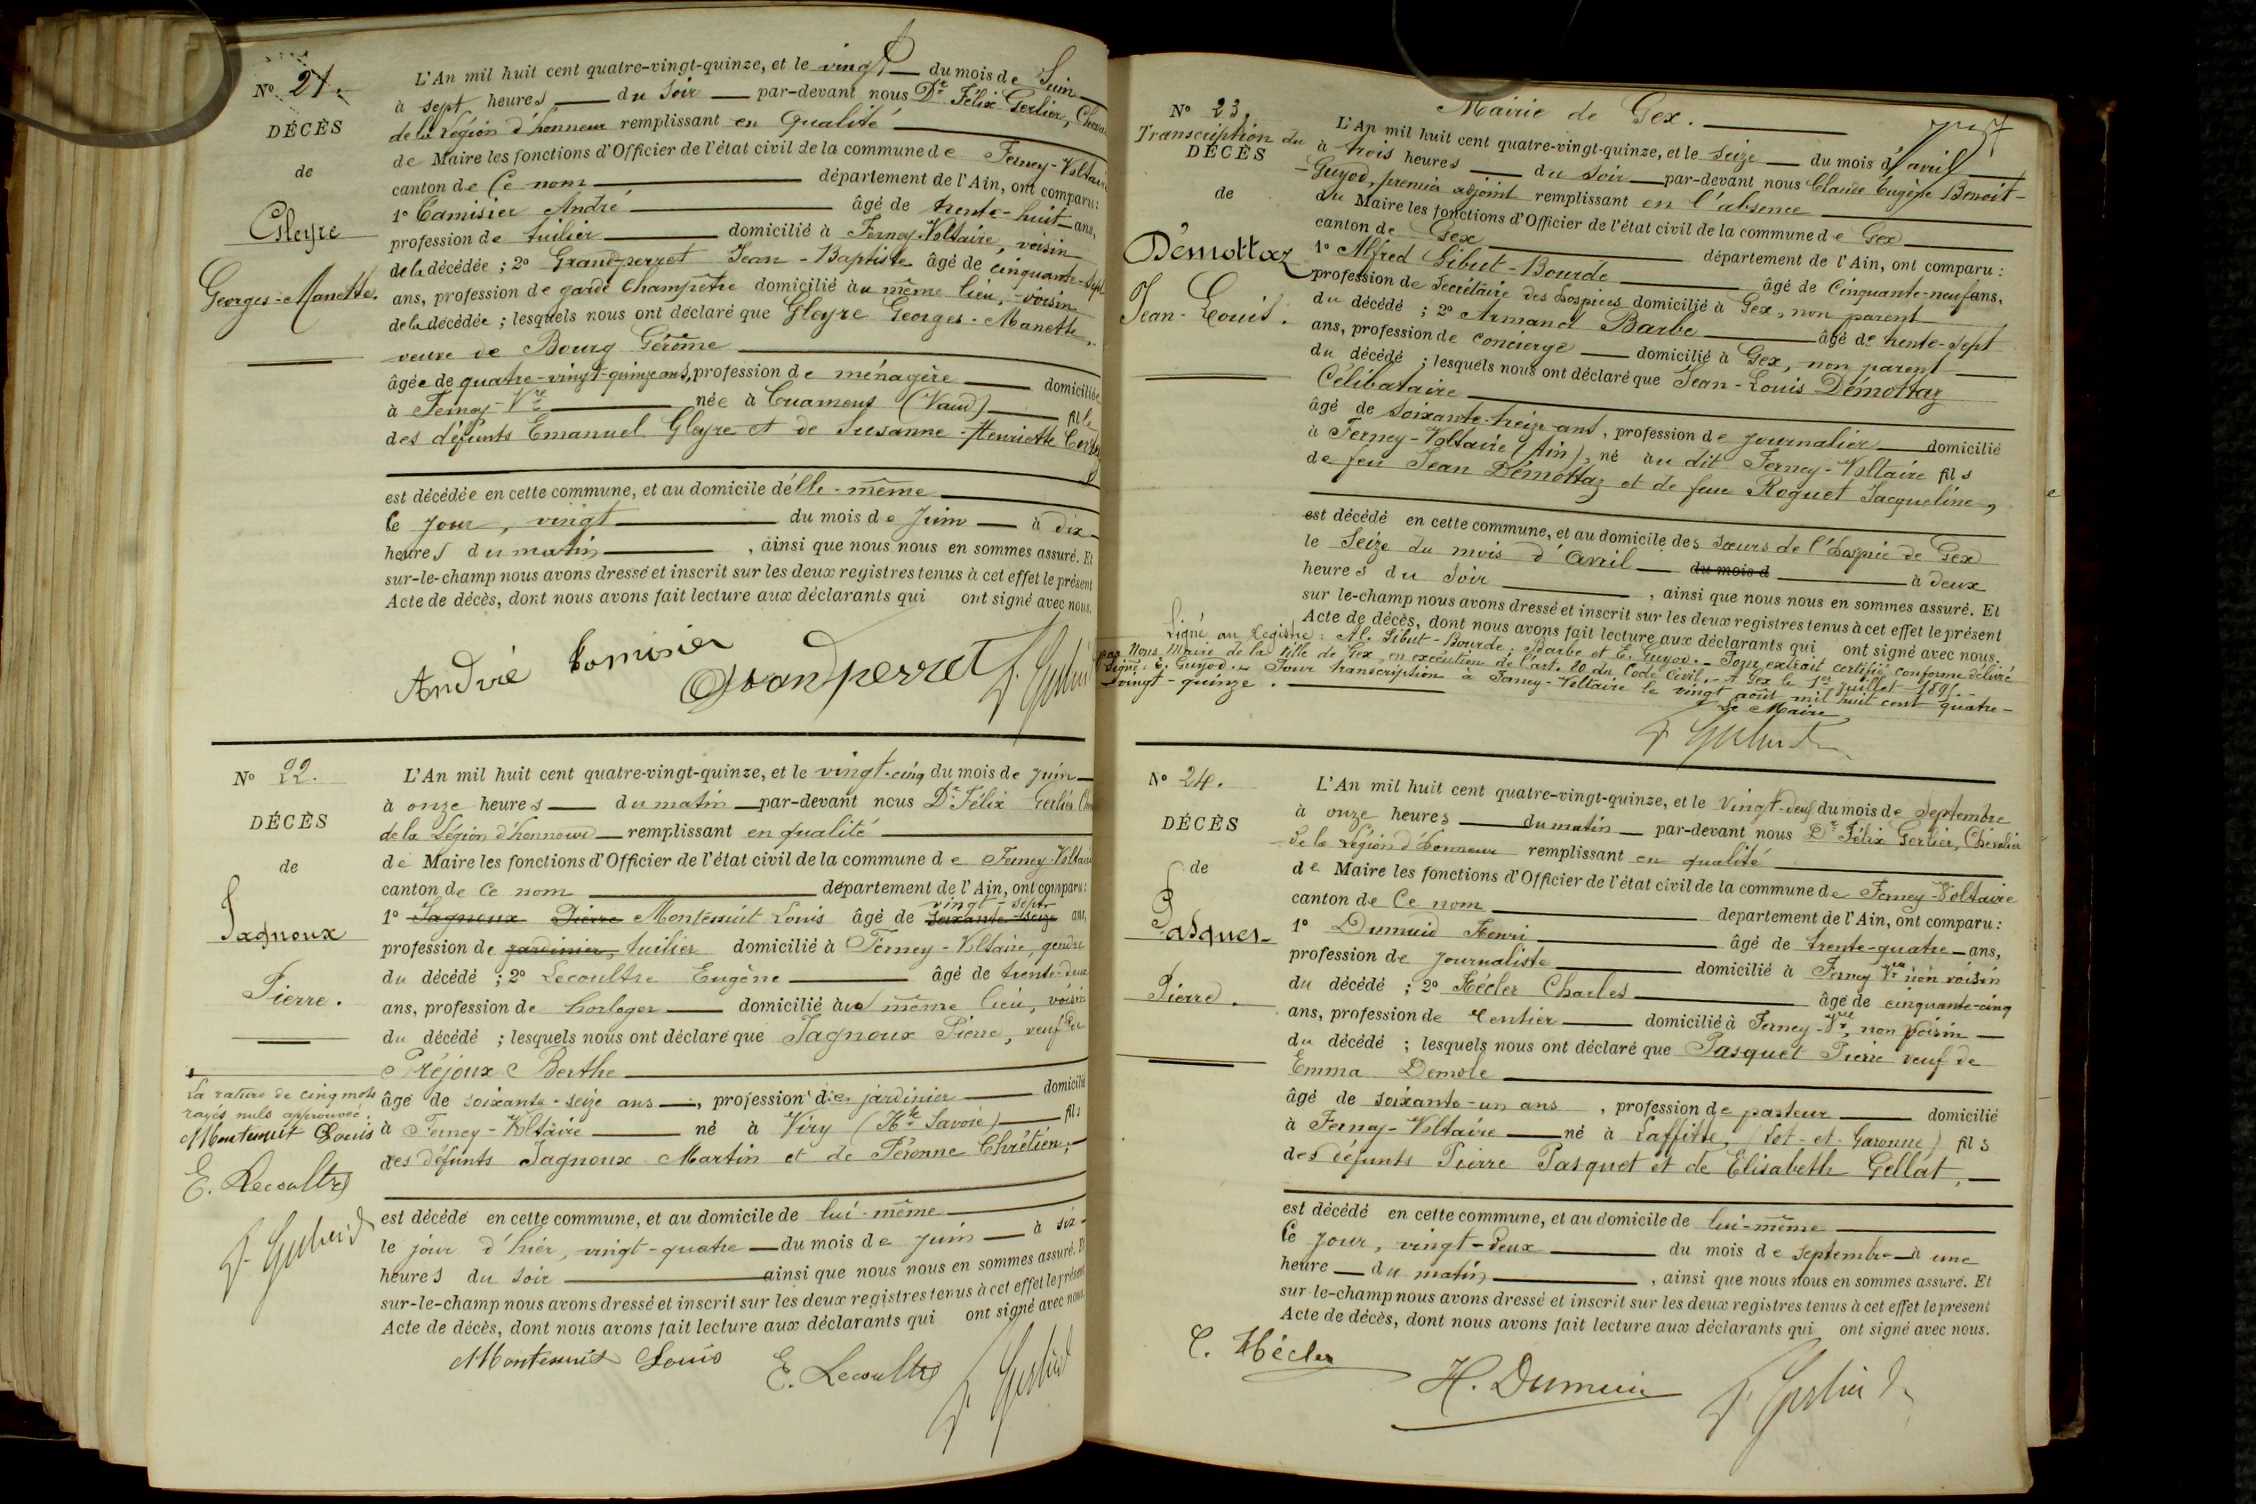 N° 21.
DÉCÈS
de
Gleyre
Georges-Manette.
L'An mil huit cent quatre-vingt-quinze, et le vingt du mois de Juin
à sept heures du soir par-devant nous Dr Félix Gerlier,
de la Légion d'honneur remplissant en qualité
de Maire les fonctions d'Officier de l'état civil de la commune de Ferney-Voltaire
canton de Ce nom département de l'Ain, ont comparu :
1° Camisier André âgé de trente-huit ans,
profession de tuilier domicilié à Ferney-Voltaire, voisin
de la décédée ; 2° Grandperret Jean-Baptiste âgé de cinquante-sept
ans, profession de garde Champêtre domicilié au même lieu, voisin
de la décédée ; lesquels nous ont déclaré que Gleyre Georges-Manette,
veuve de Bourg Gérôme
âgée de quatre-vingt-quinze ans, profession de ménagère domiciliée
à Ferney-Vre née à Cuamens (Vaud) fille
des défunts Emanuel Gleyre et de Susanne-Henriette
est décédée en cette commune, et au domicile d'elle-même
Ce jour, vingt du mois de juin à dix
heures du matin , ainsi que nous nous en sommes assuré. Et
sur-le-champ nous avons dressé et inscrit sur les deux registres tenus à cet effet le présent
Acte de décès, dont nous avons fait lecture aux déclarants qui ont signé avec nous.
André Comisier Grandperret
N° 22.
DÉCÈS
de
Jagnoux
Pierre.
L'An mil huit cent quatre-vingt-quinze, et le vingt-cinq du mois de juin
à onze heures du matin par-devant nous Dr Félix Gerlier
de la Légion d'honneur remplissant en qualité
de Maire les fonctions d'Officier de l'état civil de la commune de Ferney-Voltaire
canton de Ce nom département de l'Ain, ont comparu :
vingt-sept
1° Jagnoux Pierre Montésuit Louis âgé de soixante-seize ans,
profession de jardinier, tuilier domicilié à Ferney-Voltaire, gendre
du décédé ; 2° Lecoultre Eugène âgé de trente-deux
ans, profession de horloger domicilié au même lieu, voisin
du décédé ; lesquels nous ont déclaré que Jagnoux Pierre, veuf de
Préjoux Berthe
âgé de soixante-seize ans, profession de jardinier domicilié
à Ferney-Voltaire né à Viry (Hte Savoie) fils
des défunts Jagnoux Martin et de Péronne Chrétien,
est décédé en cette commune, et au domicile de lui-même
le jour d'hier, vingt-quatre du mois de juin à six
heures du soir ainsi que nous nous en sommes assuré. Et
sur-le-champ nous avons dressé et inscrit sur les deux registres tenus à cet effet le présent
Acte de décès, dont nous avons fait lecture aux déclarants qui ont signé avec nous.
La rature de cinq mots
rayés nuls approuvée.
Montesuit Louis
E. Lecoultre
Montesuit Louis E. Lecoultre
N° 23.
Transcription du
DÉCÈS
de
Démottaz
Jean-Louis.
Mairie de Gex.
L'An mil huit cent quatre-vingt-quinze, et le seize du mois d'avril
à trois heures du soir par-devant nous Claude Eugène Benoit-
-Guyod, premier adjoint remplissant en l'absence
du Maire les fonctions d'Officier de l'état civil de la commune de Gex
canton de Gex département de l'Ain, ont comparu :
1° Alfred Gibut-Bourde âgé de Cinquante-neuf ans,
profession de Secrétaire des hospices domicilié à Gex, non parent
du décédé ; 2° Armand Barbe âgé de trente-sept
ans, profession de concierge domicilié à Gex, non parent
du décédé ; lesquels nous ont déclaré que Jean-Louis Démottaz
Célibataire
âgé de soixante-treize ans, profession de journalier domicilié
à Ferney-Voltaire (Ain), né au dit Ferney-Voltaire fils
de feu Jean Démottaz et de feue Roguet Jacqueline,
est décédé en cette commune, et au domicile des sœurs de l'hospice de Gex
le Seize du mois d'avril du mois d à deux
heures du soir , ainsi que nous nous en sommes assuré. Et
sur le-champ nous avons dressé et inscrit sur les deux registres tenus à cet effet le présent
Acte de décès, dont nous avons fait lecture aux déclarants qui ont signé avec nous.
Signé au registre : Al. Gibut-Bourde ; Barbe et E. Guyod. - Pour extrait certifié conforme délivré
par Nous Maire de la ville de Gex en exécution de l'art. 80 du Code Civil. - A Gex le 1er juillet 1895.
Signé : E. Guyod. - Pour transcription à Ferney-Voltaire le vingt août mil huit cent quatre-
-vingt-quinze.
Le Maire,
N° 24.
DÉCÈS
de
Pasquet
Pierre.
L'An mil huit cent quatre-vingt-quinze, et le Vingt-deux du mois de Septembre
à onze heures du matin par-devant nous Dr Félix Gerlier, Chevalier
de la Légion d'honneur remplissant en qualité
de Maire les fonctions d'Officier de l'état civil de la commune de Ferney-Voltaire
canton de Ce nom département de l'Ain, ont comparu :
1° Dumuid Henri âgé de trente-quatre ans,
profession de journaliste domicilié à Ferney Vre non voisin
du décédé ; 2° Hécler Charles âgé de cinquante-cinq
ans, profession de rentier domicilié à Ferney-Vre, non voisin
du décédé ; lesquels nous ont déclaré que Pasquet Pierre veuf de
Emma Demole
âgé de soixante-un ans , profession de pasteur domicilié
à Ferney-Voltaire né à Laffitte, (Lot-et-Garonne) fils
des défunts Pierre Pasquet et de Elisabeth Gellat,
est décédé en cette commune, et au domicile de lui-même
Ce jour, vingt-deux du mois de septembre à une
heure du matin , ainsi que nous nous en sommes assuré. Et
sur-le-champ nous avons dressé et inscrit sur les deux registres tenus à cet effet le présent
Acte de décès, dont nous avons fait lecture aux déclarants qui ont signé avec nous.
C. Hécler H. Dumuid